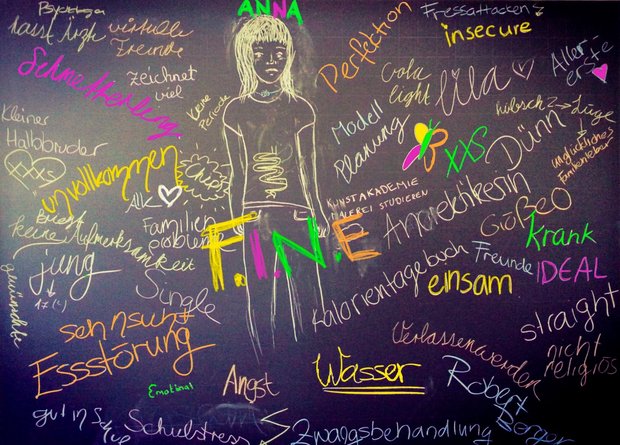 Psychologen
hasst Ärzte
virtuelle
Freunde
ANNA
Perfektion
Fressattacken
insecure
Aller-
erste
Schmetterling
zeichnet
viel
keine
Periode
cola
light
lila
hübsch? → Lüge
Kleiner
Halbbruder
XXS
unvollkommen
Chips
Modell
Planung
XXS
Dünn
unglückliches
Familienleben
Alk
KUNSTAKADEMIE
MALEREI STUDIEREN
Anorektikerin
Größe 0
Familien
probleme
keine Aufmerksamkeit
F.I.N.E
krank
jung
17 (?)
Single
Kalorientagebuch
Freunde
einsam
IDEAL
straight
sehnsucht
Essstörung
Emotional
Angst
Wasser
Verlassenwerden
nicht
religiös
Robert
Schulstress
Zwangsbehandlung
gut in